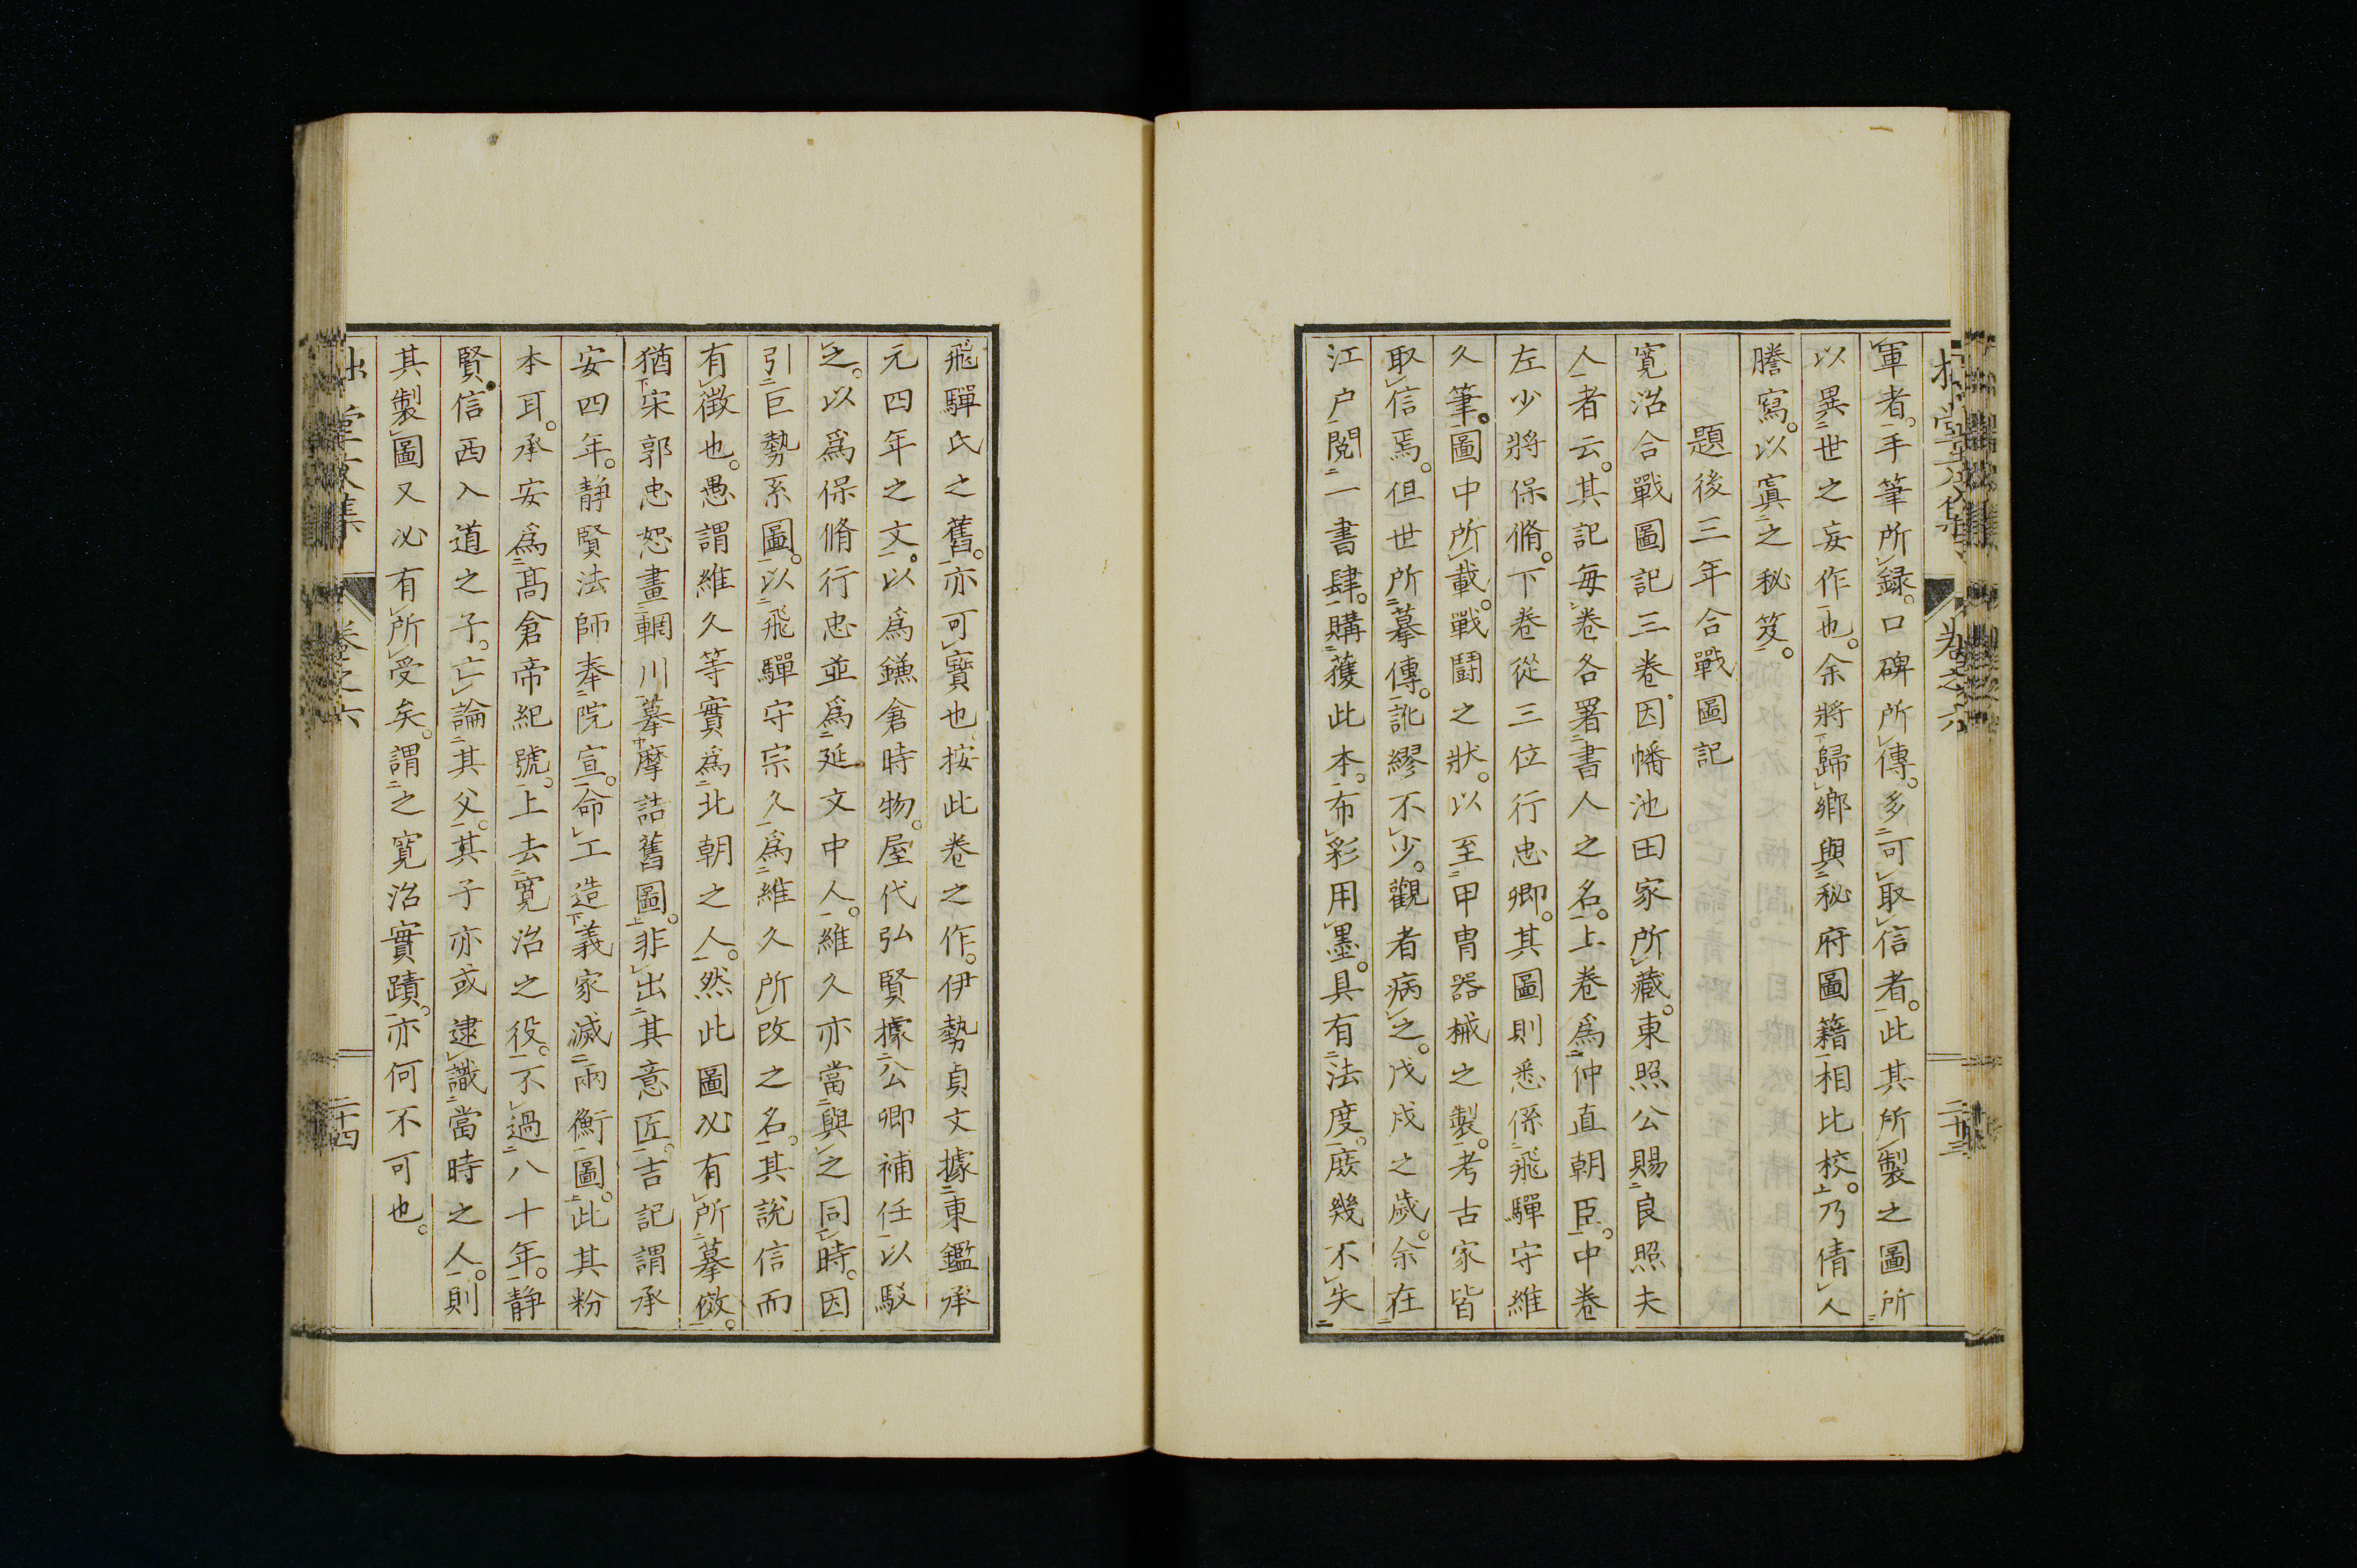 拙堂文集 卷之六 二十三
軍者。手筆所錄。口碑所傳。多可取信者。此其所製之圖所
以異世之妄作也。余將歸鄉與秘府圖籍相比校。乃倩人
謄寫。以寘之秘笈。
題後三年合戰圖記
寛治合戰圖記三卷。因幡池田家所藏。東照公賜良照夫
人者云。其記每卷各署書人之名。上卷爲仲直朝臣。中卷
左少將保脩。下卷從三位行忠卿。其圖則悉係飛驒守維
久筆。圖中所載。戰鬪之狀。以至甲冑器械之製。考古家皆
取信焉。但世所摹傳。訛繆不少。觀者病之。戊戌之歲。余在
江戸閱一書肆。購獲此本。布彩用墨。具有法度。庶幾不失
飛驒氏之舊。亦可寶也。按此卷之作。伊勢貞文據東鑑承
元四年之文。以爲鎌倉時物。屋代弘賢據公卿補任以駁
之。以爲保脩行忠並爲延文中人。維久亦當與之同時。因
引巨勢系圖。以飛驒守宗久爲維久所改之名。其說信而
有徵也。愚謂維久等實爲北朝之人。然此圖必有所摹倣。
猶宋郭忠恕畫輞川摹摩詰舊圖。非出其意匠。吉記謂承
安四年。靜賢法師奉院宣。命工造義家滅兩衡圖。此其粉
本耳。承安爲髙倉帝紀號。上去寛治之役。不過八十年。靜
賢。信西入道之子。亡論其父。其子亦或逮識當時之人。則
其製圖又必有所受矣。謂之寛治實蹟。亦何不可也。
拙堂文集 卷之六 二十四